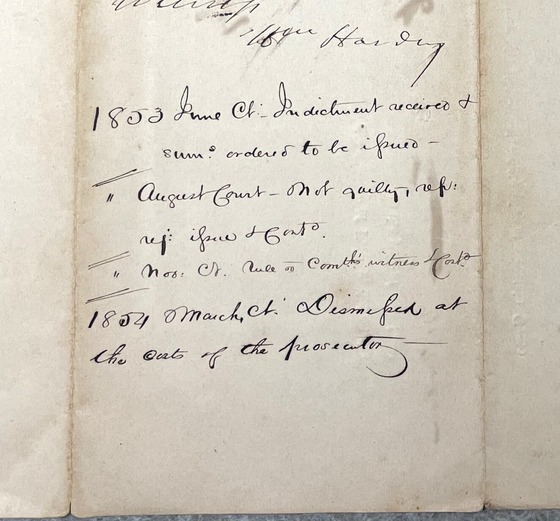 Wm Hardy
1853 June Ct:- Indictment received &
sums ordered to be issued -
" August Court - Not guilty, rep:
rej: issue & Contd.
" Nov: Ct. rule on Comths witness & Contd
1854 March Ct: Dismissed at
the costs of the prosecutor